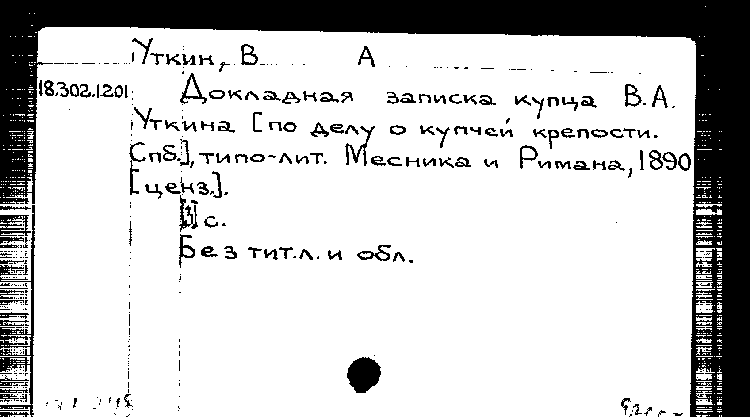 Уткин, В А
18.302.1.201
Докладная записка купца В.А.
Уткина [по делу о купчей крепости.
Спб.], типо-лит. Месника и Римана, 1890
[ценз.].
с.
Без тит.л. и обл.